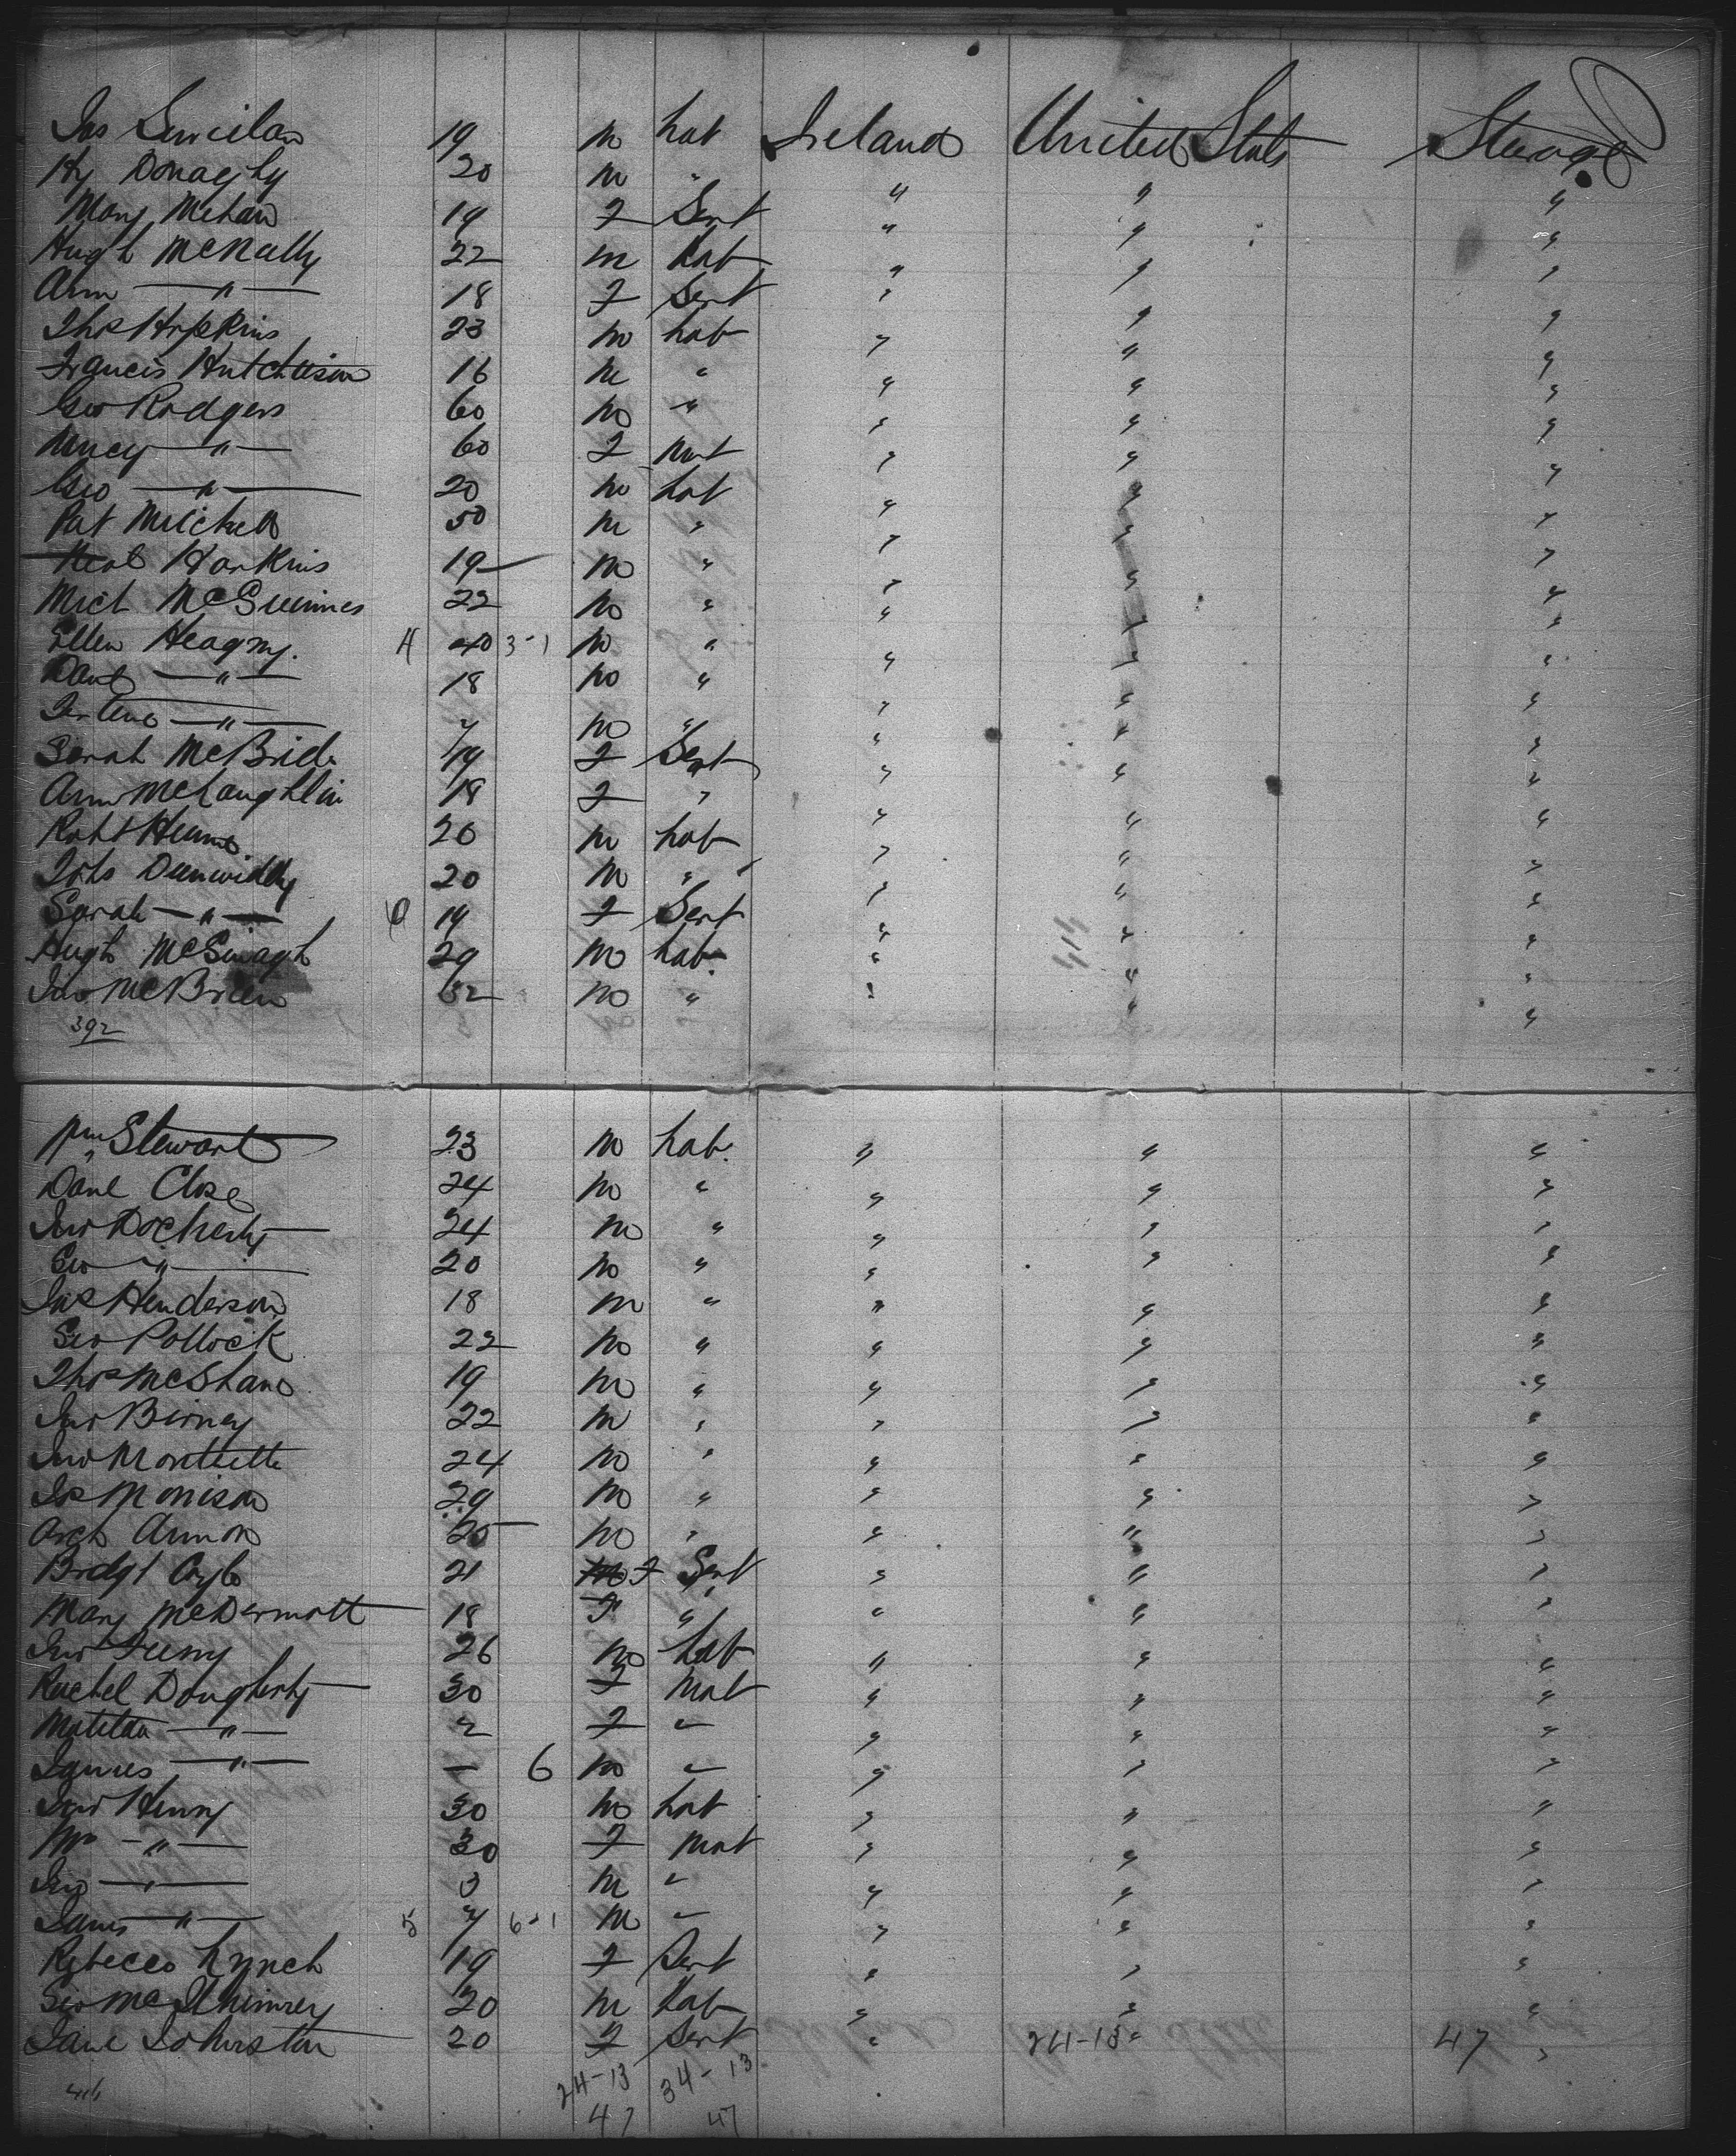 Jas 19 m Lab Ireland United States Steerage
Hy Donaghy 20 m " " " "
Mary Mehan 19 F Servt " " "
Hugh McNally 22 m Lab " " "
Ann — " — 18 F Servt " " "
Thos Hopkins 23 m Lab " " "
Francis Hutchison 16 m " " " "
Geo Rodgers 60 m " " " "
Nancy — " — 60 F Mat " " "
Geo — " — 20 m Lab " " "
Pat Mitchell 50 m " " " "
Neal Harkins 19 m " " " "
Mich McGuinnes 22 m " " " "
Ellen Heagny. 4 40 3-1 m " " " "
Danl — " — 18 m " " " "
— " — 7 m " " " "
Sarah McBride 19 F Servt " " "
Ann McLaughlin 18 F " " " "
Robt 20 m Lab " " "
Dunwiddy 20 m " " " "
Sarah — " — 19 F Servt " " "
Hugh 29 m Lab. " " "
Jno McBrien 62 m " " " "
392
Wm Stewart 23 m Lab. " " "
Danl Close 24 m " " " "
Jno Docherty 24 m " " " "
Geo — " — 20 m " " " "
Jas Henderson 18 m " " " "
Geo Pollock 22 m " " " "
Thos McShane 19 m " " " "
Jno Birney 22 m " " " "
Jno Monteith 24 m " " " "
Jas Morrison 29 m " " " "
Arch 25 m " " " "
Bridgt 21 m F Servt " " "
Mary McDermott 18 F " " " "
Jno Feeny 26 m Lab " " "
Rachel Dougherty 30 F Mat " " "
Matilda — " — 2 F " " " "
James — " — — 6 m " " " "
Jno Henry 30 m Lab " " "
Mrs — " — 30 F Mat " " "
Jno — " — 3 m " " " "
James — " — 5 7 6-1 m " " " "
Rebecca Lynch 19 F Servt " " "
Geo 20 m Lab " " "
Jane Johnston 20 F Servt " 24-13 " 47 "
416 24-13 34-13
47 47